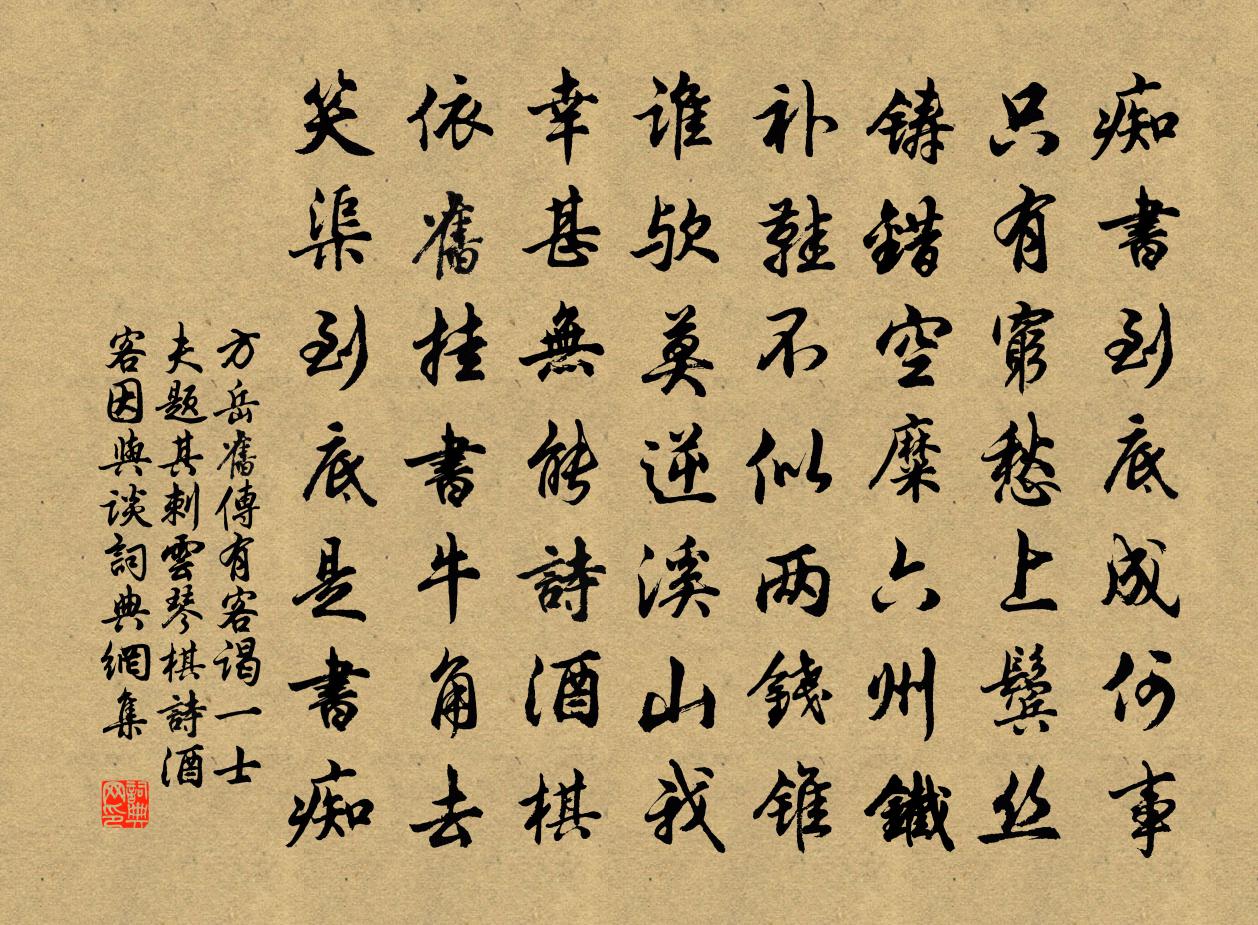 痴書到底成何事
只有窮愁上鬢丝
鋳錯空糜六州鐵
补鞋不似两錢锥
谁欤莫逆溪山我
幸甚無能詩酒棋
依舊挂書牛角去
笑渠到底是書痴
方岳舊傳有客谒一士
夫题其刺雲琴棋詩酒
客因與谈詞典網集
詞典网印